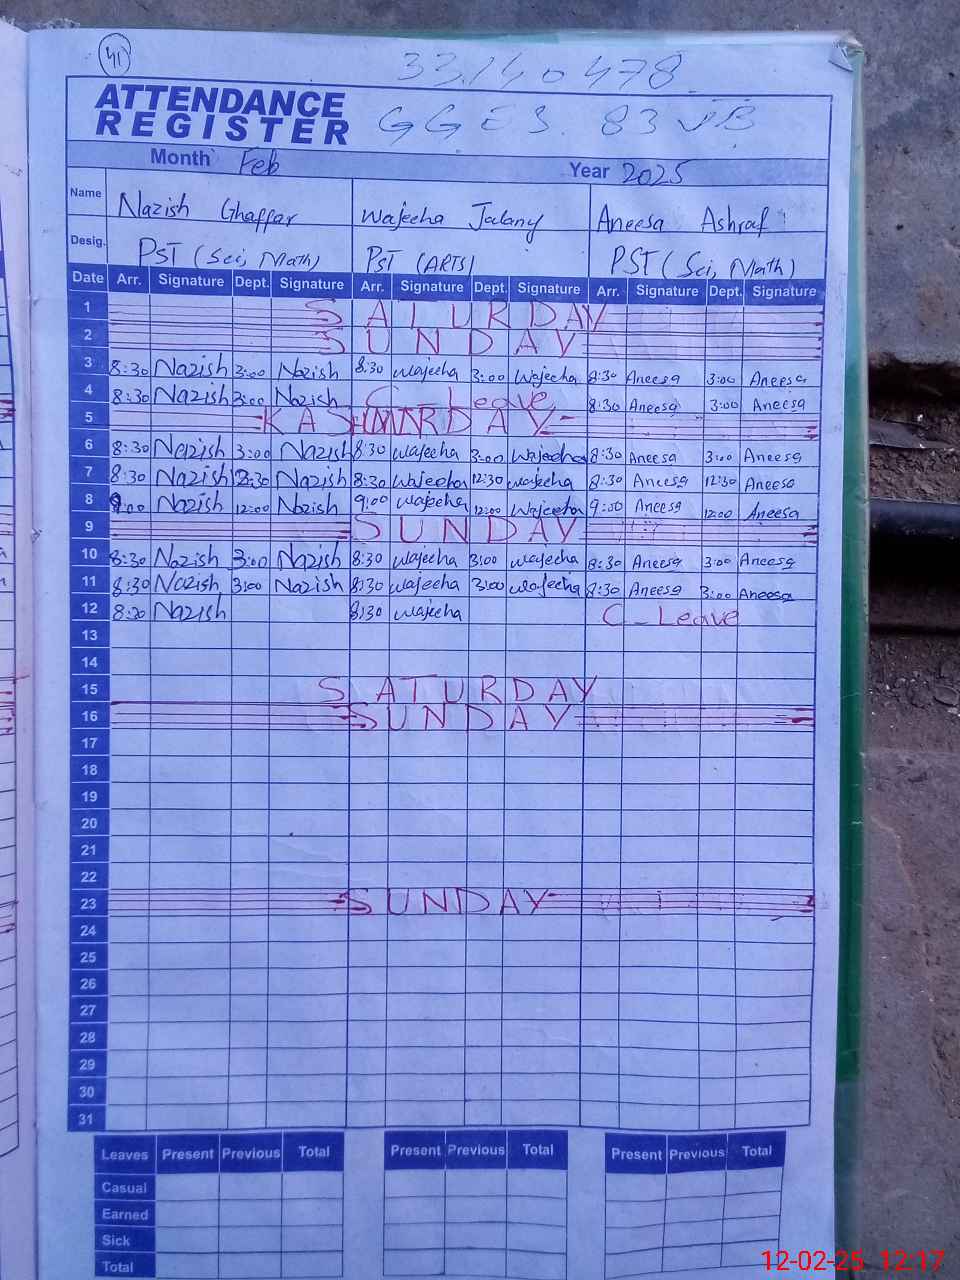 41
33140478
ATTENDANCE
REGISTER
GGES. 83 JB
Month Feb Year 2025
Name Nazish Ghaffar Wajeeha Jalany Aneesa Ashraf
Desig. PST (Sci, Math) PST (ARTS) PST (Sci, Math)
Date Arr. Signature Dept. Signature Arr. Signature Dept. Signature Arr. Signature Dept. Signature
1 SATURDAY
2 SUNDAY
3 8:30 Nazish 3:00 Nazish 8:30 wajeeha 3:00 Wajeeha 8:30 Aneesa 3:00 Aneesa
4 8:30 Nazish 3:00 Nazish C_Leave 8:30 Aneesa 3:00 Aneesa
5 KASHMIR DAY
6 8:30 Nazish 3:00 Nazish 8:30 wajeeha 3:00 Wajeeha 8:30 Aneesa 3:00 Aneesa
7 8:30 Nazish 12:30 Nazish 8:30 Wajeeha 12:30 wajeeha 8:30 Aneesa 12:30 Aneesa
8 9:00 Nazish 12:00 Nazish 9:00 wajeeha 12:00 Wajeeha 9:00 Aneesa 12:00 Aneesa
9 SUNDAY
10 8:30 Nazish 3:00 Nazish 8:30 wajeeha 3:00 wajeeha 8:30 Aneesa 3:00 Aneesa
11 8:30 Nazish 3:00 Nazish 8:30 wajeeha 3:00 wajeeha 8:30 Aneesa 3:00 Aneesa
12 8:30 Nazish 8:30 wajeeha C_Leave
13
14
15 SATURDAY
16 SUNDAY
17
18
19
20
21
22
23 SUNDAY
24
25
26
27
28
29
30
31
Leaves Present Previous Total Present Previous Total Present Previous Total
Casual
Earned
Sick
Total
12-02-25 12:17